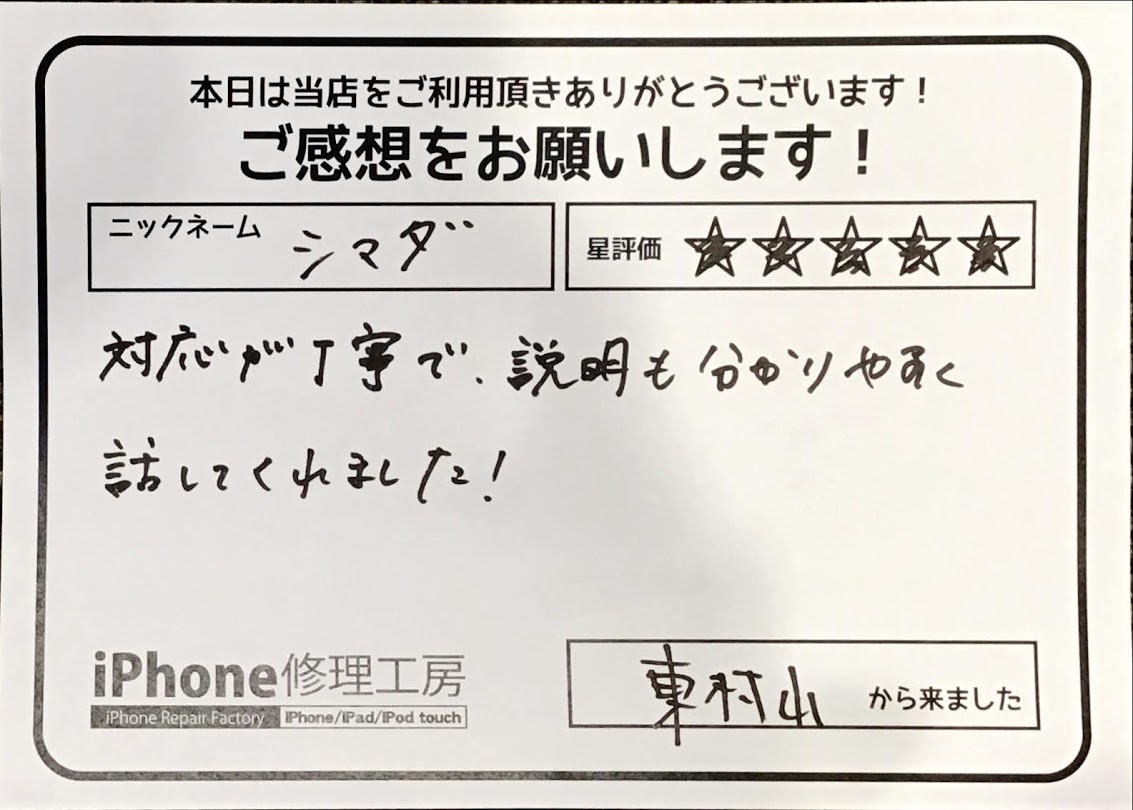 本日は当店をご利用頂きありがとうございます！
ご感想をお願いします！
ニックネーム シマダ
星評価 ★★★★★
対応が丁寧で、説明も分かりやすく
話してくれました！
iPhone修理工房
iPhone Repair Factory iPhone/iPad/iPod touch
東村山 から来ました